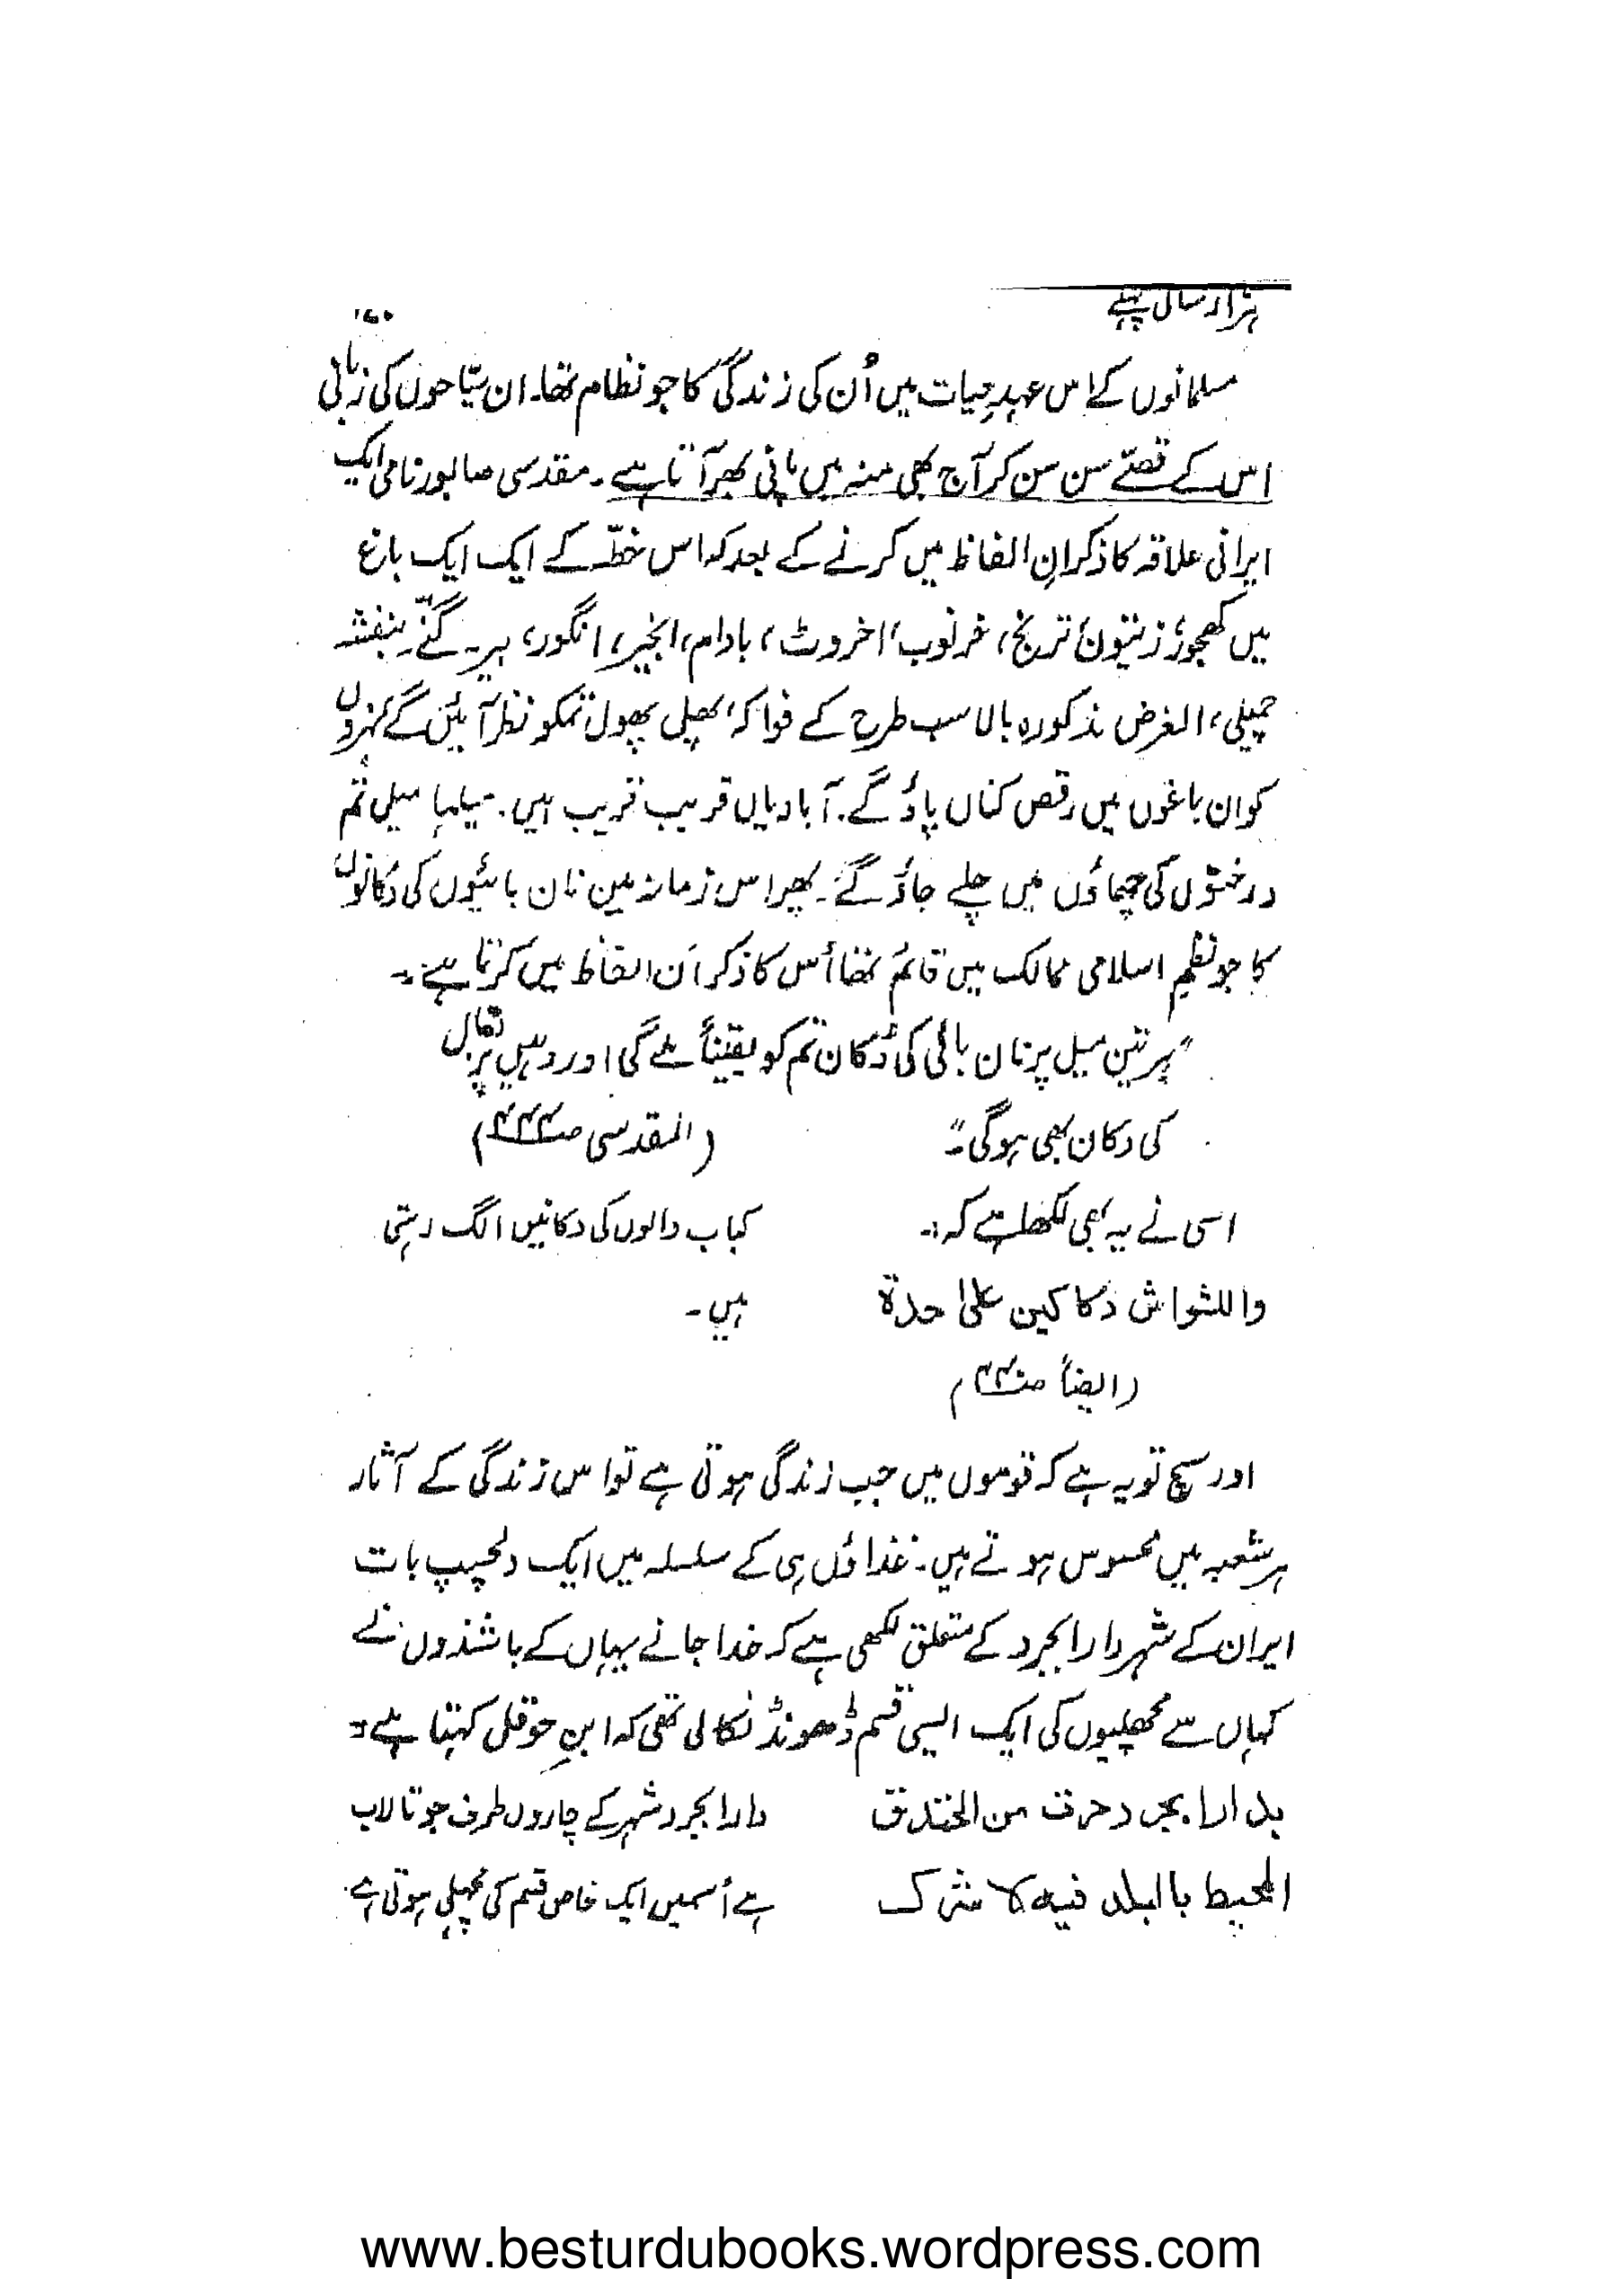 ہزار سال پہلے
۱۷۰
مسلمانوں کے اس عہدِ حیات میں اُن کی زندگی کا جو نظام تھا۔ ان سیّاحوں کی زبانی
اس کے قصّے سن سن کر آج بھی منہ میں پانی بھر آتا ہے۔ مقدسی صابور نامی ایک
ایرانی علاقہ کا ذکر اِن الفاظ میں کرنے کے بعد کہ اس خطّہ کے ایک ایک باغ
میں کھجور، زیتون، ترنج، خرنوب، اخروٹ، بادام، انجیر، انگور، بیر۔ گنّے۔ بنفشہ
چمیلی، الغرض مذکورہ بالا سب طرح کے فواکہ، پھلی پھول تمکو نظر آئیں گے نہروں
کو ان باغوں میں رقص کناں پاؤ گے۔ آبادیاں قریب قریب ہیں۔ میلہا میل تُم
درختوں کی چھاؤں میں چلے جاؤ گے۔ پھر اس زمانہ میں نان بائیوں کی دکانوں
کا جو نظم اسلامی ممالک میں قائم تھا اُس کا ذکر اَن الفاظ میں کرتا ہے:۔
"ہر تین میل پر نان بائی کی دُکان تم کو یقیناً ملے گی اور وہیں پر بقال
کی دکان بھی ہوگی۔" (المقدسی صـ۴۴۴)
اسی نے یہ بھی لکھا ہے کہ:۔
واللشواش دکاکین علیٰ حدۃ
(ایضاً صـ۴۴)
کباب والوں کی دکانیں الگ رہتی
ہیں۔
اور سچ تو یہ ہے کہ قوموں میں جب زندگی ہوتی ہے تو اس زندگی کے آثار
ہر شعبہ میں محسوس ہوتے ہیں۔ غذاؤں ہی کے سلسلہ میں ایک دلچسپ بات
ایران کے شہر دارابجرد کے متعلق لکھی ہے کہ خدا جانے یہاں کے باشندوں نے
کہاں سے مچھلیوں کی ایک ایسی قسم ڈھونڈ نکالی تھی کہ ابنِ حوقل کہتا ہے:۔
بدارابجرد حرت من الخندق
المحیط باالبلد فیہ لا شرک
دارابجرد شہر کے چاروں طرف جو تالاب
ہے اُسمیں ایک خاص قسم کی مچھلی ہوتی ہے۔
www.besturdubooks.wordpress.com